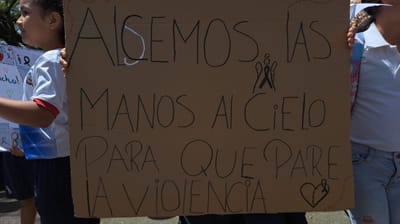 AlSEMOS lAS
MANOS Al CIELO
PARA QUE PARE
lA VIOLENCIA